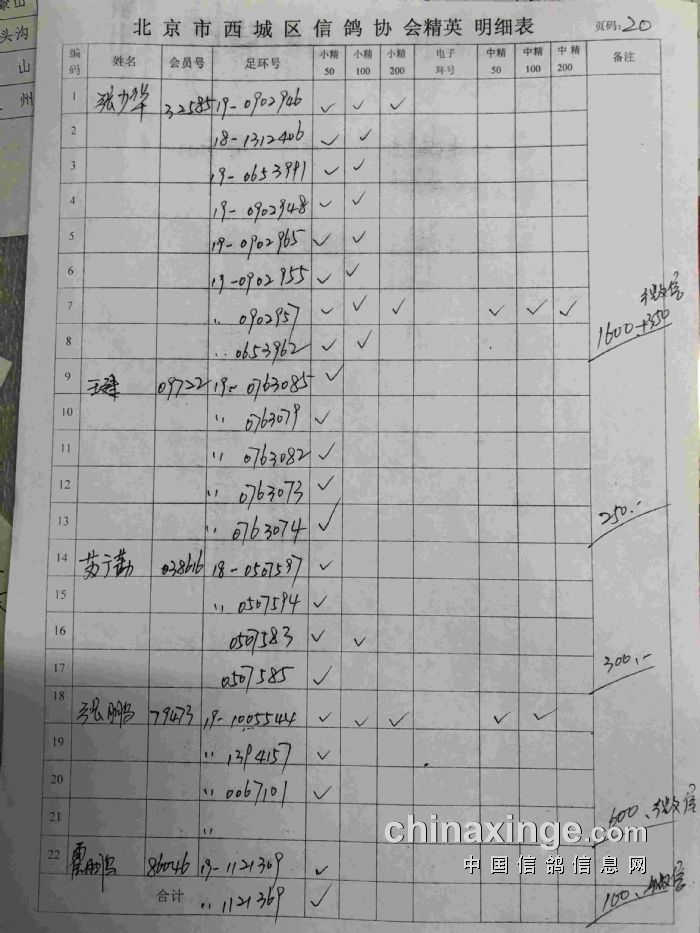 北京市西城区信鸽协会精英 明细表 页码：20
编码 姓名 会员号 足环号 小精50 小精100 小精200 电子环号 中精50 中精100 中精200 备注
1 32585 19-0902946 ✓ ✓ ✓
2 18-1312406 ✓ ✓
3 19-0653991 ✓ ✓
4 19-0902948 ✓ ✓
5 19-0902965 ✓ ✓
6 19-0902955 ✓ ✓
7 〃 0902957 ✓ ✓ ✓ ✓ ✓ ✓ 微信
8 〃 0653962 ✓ ✓ 1600.+350
9 09722 19-0763085 ✓
10 〃 0763079 ✓
11 〃 0763082 ✓
12 〃 0763073 ✓
13 〃 0763074 ✓ 250.-
14 038616 18-0507597 ✓
15 〃 0507594 ✓
16 0507583 ✓ ✓
17 0507585 ✓ 300.-
18 张鹏 79473 19-1005544 ✓ ✓ ✓ ✓ ✓
19 〃 1394157 ✓
20 〃 0067101 ✓
21 〃 600、微信
22 86046 19-1121309 ✓
合计 〃 1121369 ✓ 100、微信
chinaxinge.com
中国信鸽信息网
头沟
山
州